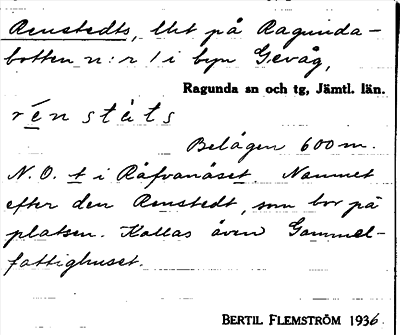 Renstedts, lht på Ragunda-
botten n:r 1 i byn Gevåg,
Ragunda sn och tg, Jämtl. län.
rénstàts
Belägen 600 m.
N.O. t i Räfvanäset. Namnet
efter den Renstedt, som bor på
platsen. Kallas även Gammel-
fattighuset.
BERTIL FLEMSTRÖM 1936.